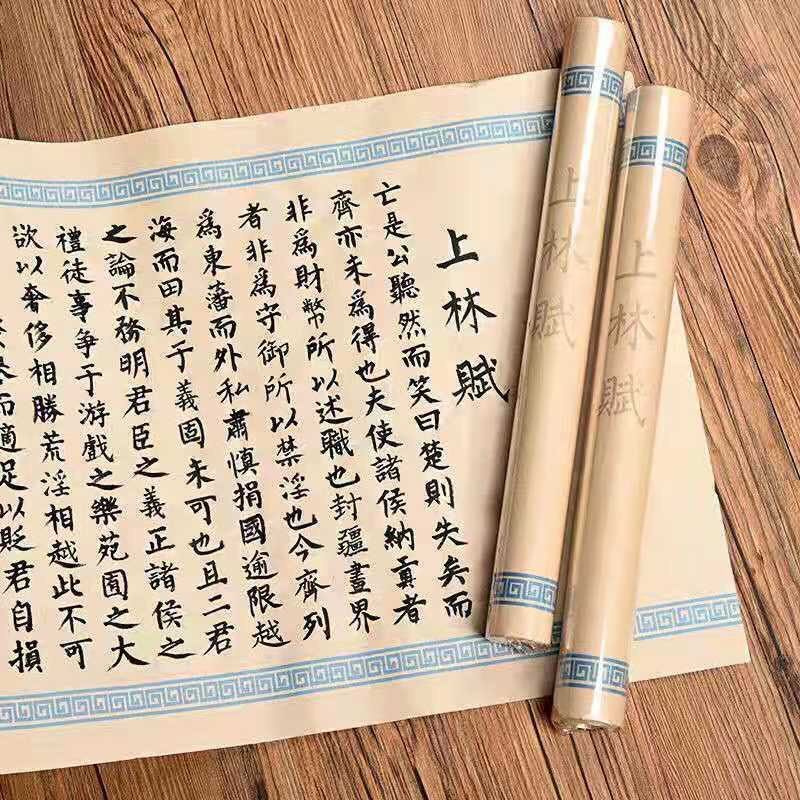 上林賦
亡是公聽然而笑曰楚則失矣而
齊亦未爲得也夫使諸侯納貢者
非爲財幣所以述職也封疆畫界
者非爲守御所以禁淫也今齊列
爲東藩而外私肅慎捐國逾限越
海而田其于義固未可也且二君
之論不務明君臣之義正諸侯之
禮徒事爭于游戲之樂苑囿之大
欲以奢侈相勝荒淫相越此不可
而適足以貶君自損
上林賦
上林賦